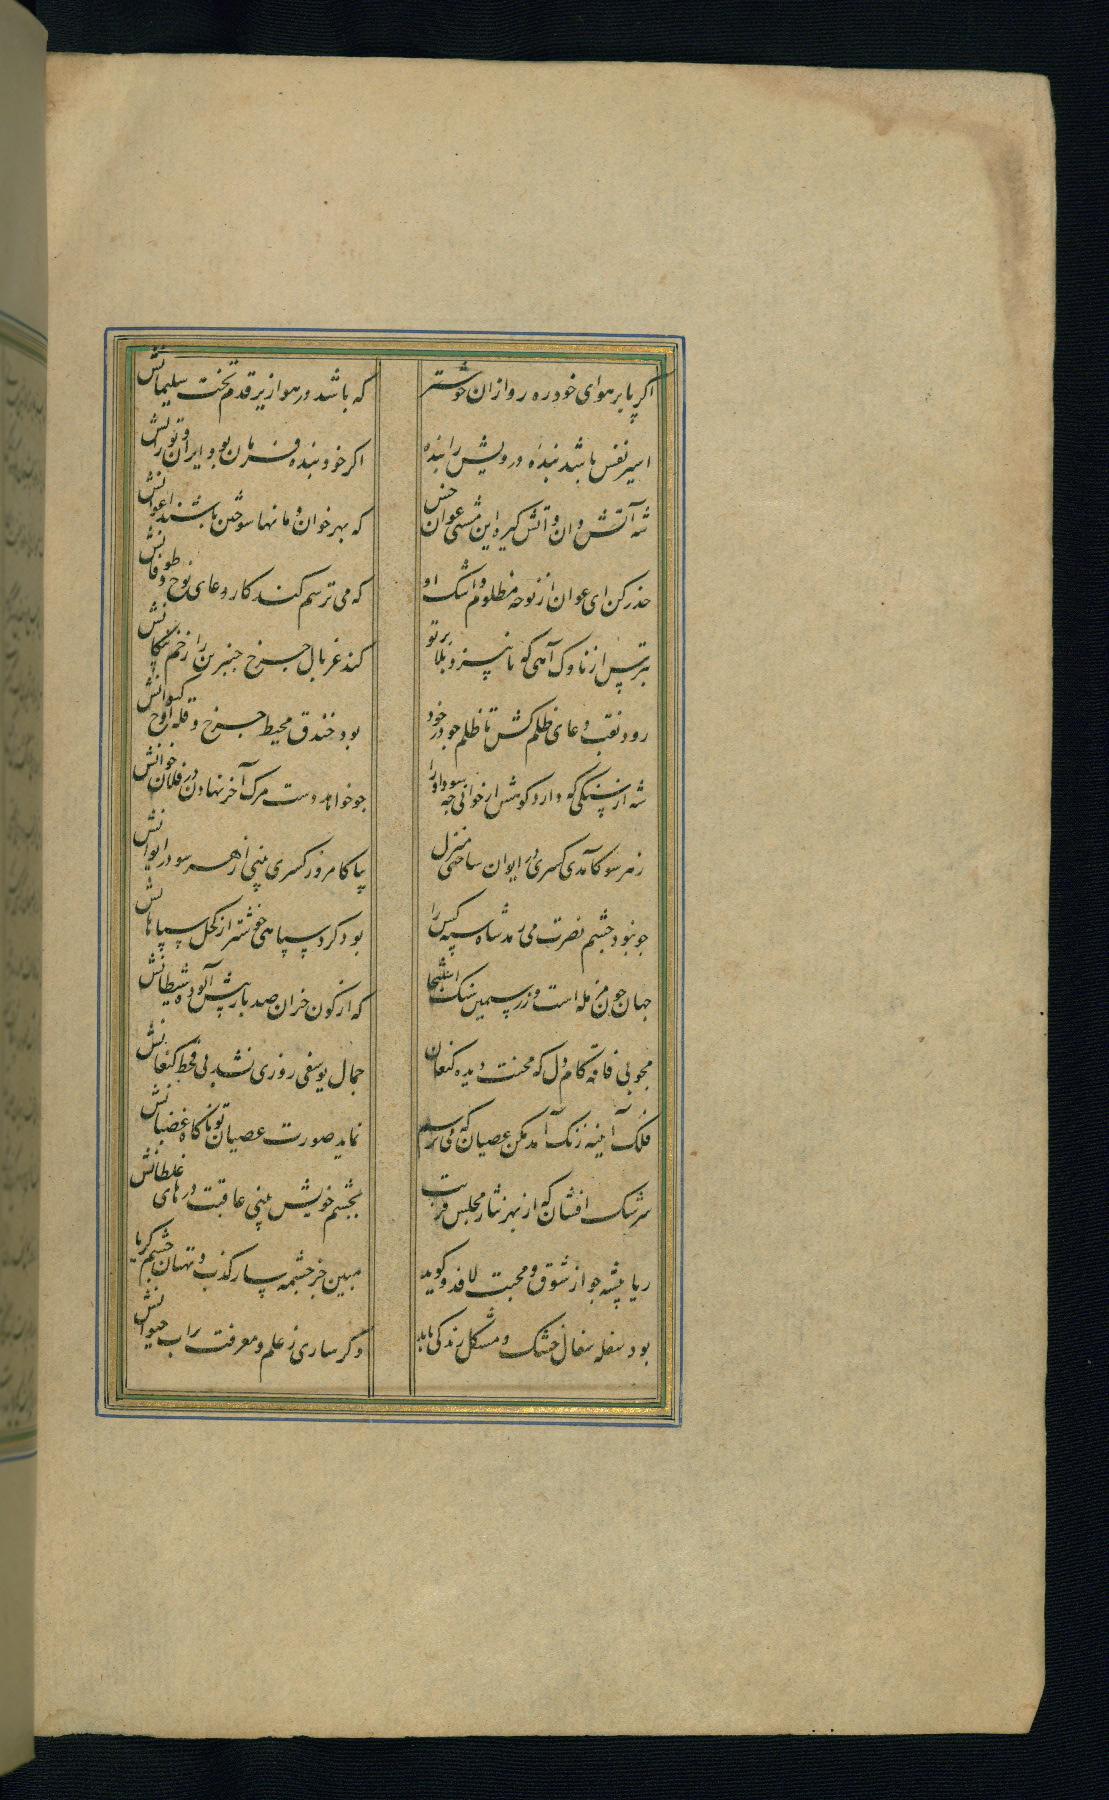 اکر پا بر هوای خود ره رواز ان خوشتر
که باشد در هوا زیر قدم تخت سلیمانش
اسیر نفس باشد بنده درویش را بنده
اکر خود بنده فرمان بود ایران و تورانش
شه آتش دان و آتش کیره این مشتی عوان خس
که بهر خوان و مانها سوختن باشند اعوانش
حذر کن ای عوان از نوحه مظلوم و اشک او
که می ترسم کند کار دعای نوح و طوفانش
بترس از ناوک آهی که بر تو
کند غربال چرخ چنبرین را زخم پیکانش
رود نقب دعای ظلم کش تا ظلم جو در خود
بود خندق محیط چرخ و قله اوج کیوانش
شه ار سنکی که دارد کوشش ار خوانی چه سود او را
چو خواهد دست مرک آخر نهادن در فلاخانش
زهر سو کآمدی کسری در ایوان ساختی منزل
بیا کامروز کسری بینی از هر سو در ایوانش
چو نبود چشم نصرت می رمد شاه سپه کس را
بود کرد سپاهی خوشتر از کحل سپاهانش
جهان چون مزبله است و زر و سیمین سنک استنجا
که از کون خران صد بار پیش آلوده شیطانش
مجو بی فاقه کام دل که محنت دیده کنعان
جمال یوسفی روزی نشد بی قحط کنعانش
فلک آیینه زنک آمد مکن عصیان که می ترسم
نماید صورت عصیان تو ناکاه غضبانش
سرشک افشان که از بهر نثار مجلس قربت
بچشم خویش بینی عاقبت درهای غلطانش
ریا پیشه چو از شوق و محبت لافد و کوید
مبین جز چشمه سار کذب و بهتان چشم کریانش
بود سفله سفال خشک و مشکل زندکی یابد
و کر سازی ز علم و معرفت پراب حیوانش